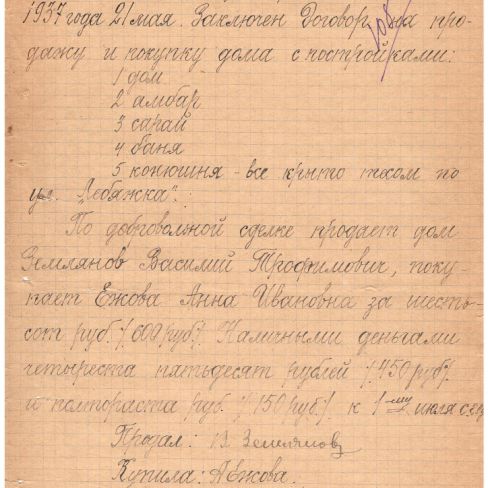 1937 года 21 мая. Заключен Договор на про-
дажу и покупку дома с постройками:
1 дом
2 амбар
3 сарай
4 баня
5 конюшня - все крыто тесом по
ул. "Лебяжка".
По добровольной сделке продает дом
Землянов Василий Трофимович, поку-
пает Ежова Анна Ивановна за шесть-
сот руб. /600 руб./. Наличными деньгами
четыреста пятьдесят рублей /450 руб/
и полтораста руб. /150 руб./ к 1му июля с.г.
Продал: В Землянов
Купила: АЕжова.